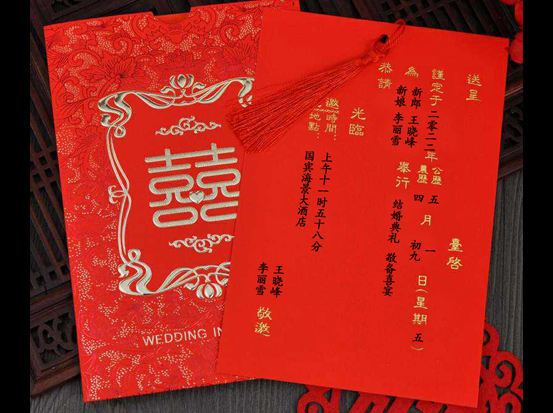 送呈 臺啓
謹定于二零二二年 公歷 五 月 一 日(星期 五)
農歷 四 初九
為 新郎 王晓峰 舉行 结婚典礼 敬备喜宴
新娘 李丽雪
恭請
光臨
時間: 上午十一时五十八分
地點: 国宾海景大酒店
王晓峰
李丽雪 敬邀
囍
WEDDING IN